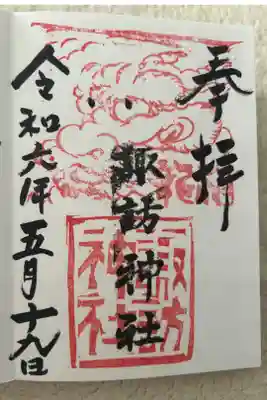 奉拝
諏訪神社
令和六年五月十九日
諏訪
神社